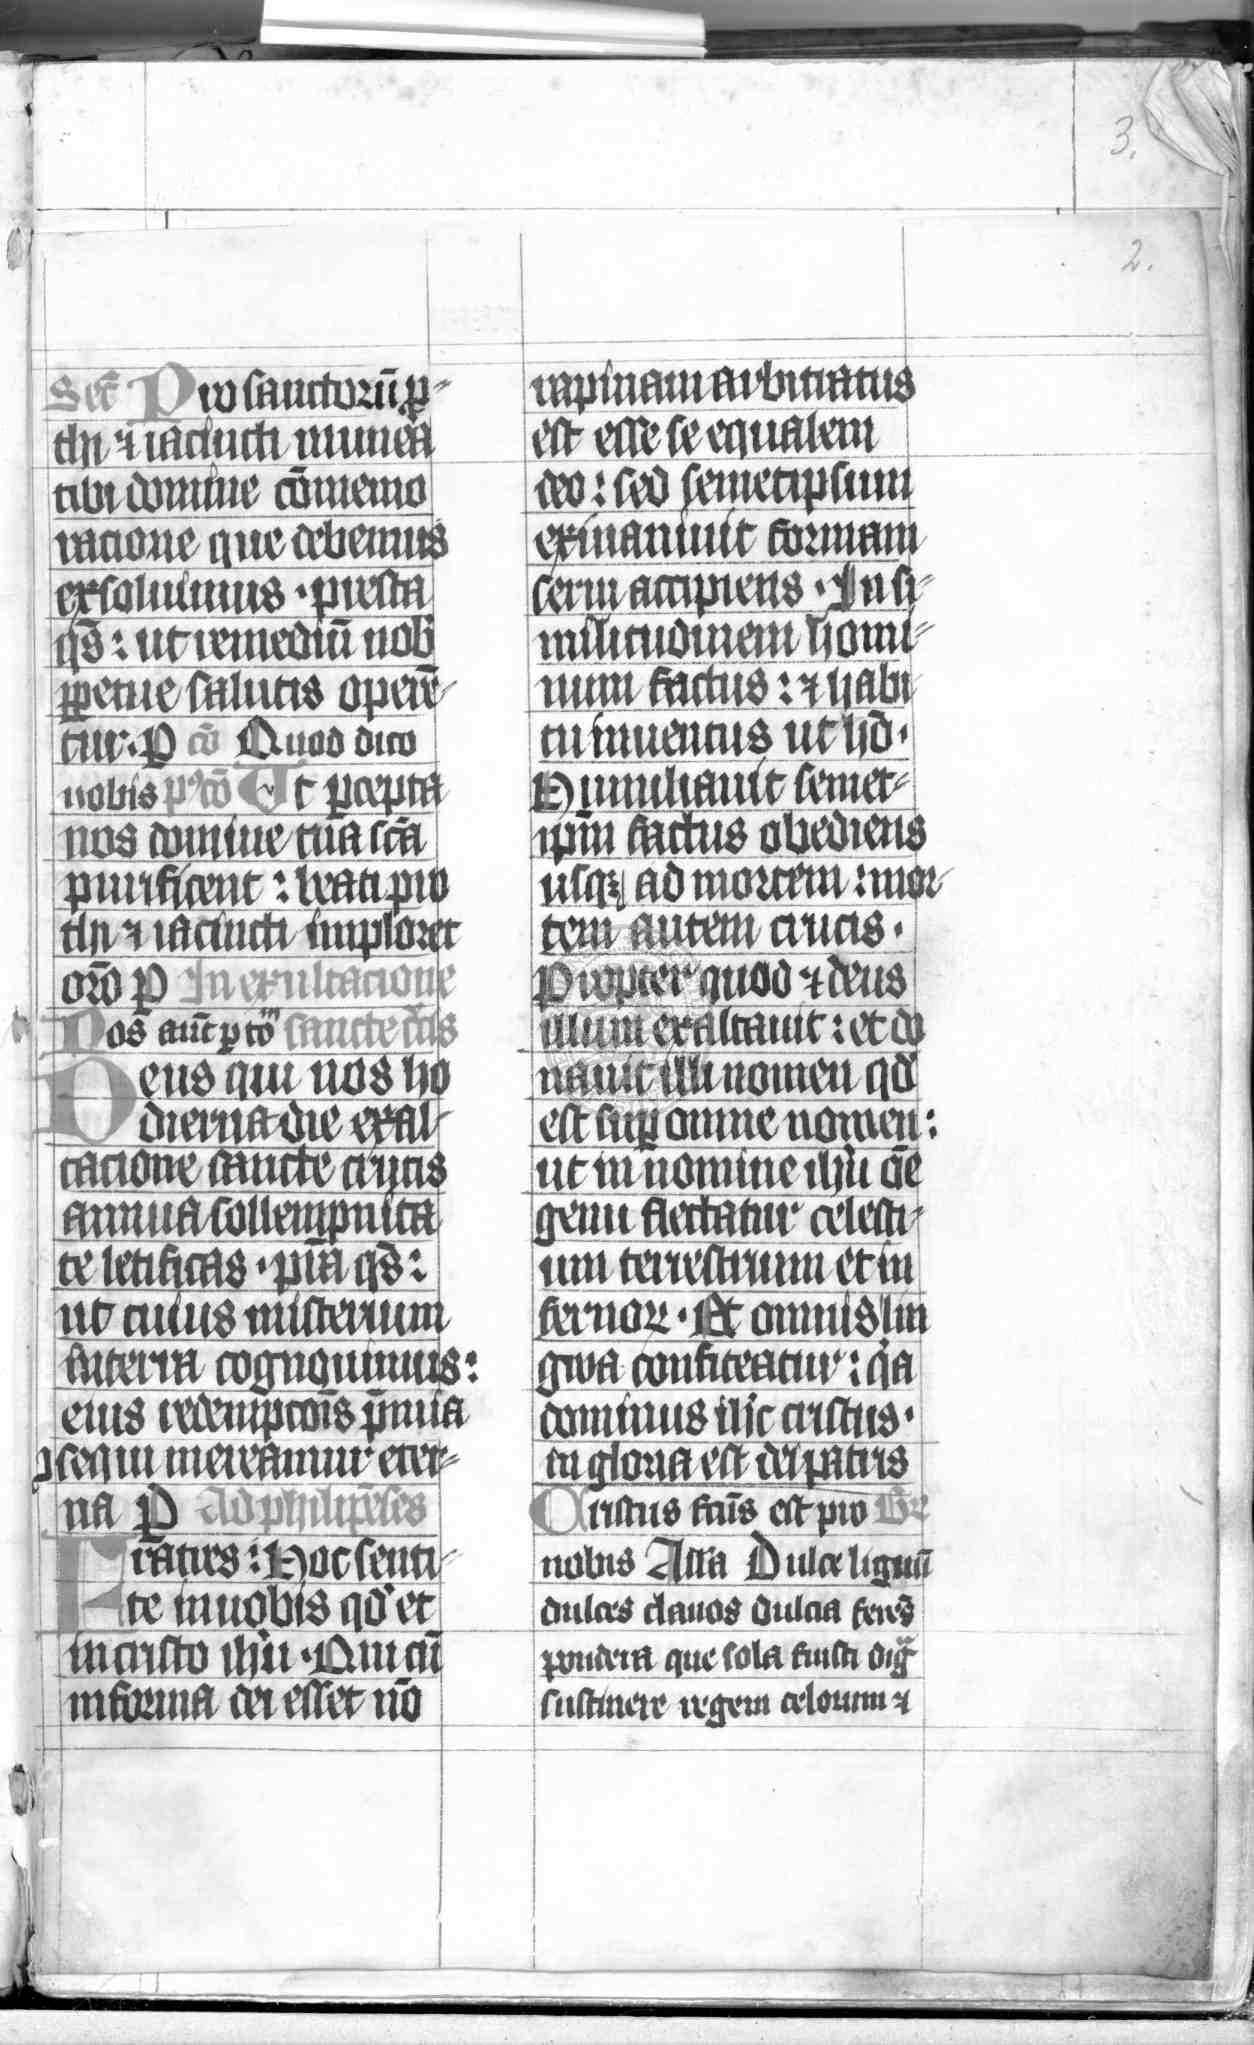 3.
2.
Secr̄ Pro sanctorū p̱-
thi ⁊ iacincti munera
tibi domine cōmemo
racione que debemus
exsoluimus · presta
qs̄ : ut remediū nob̄
ꝑpetue salutis operē-
tur . P cō Quod dico
nobis p' cō Ut ꝑcepta
nos domine tua sc̄a
purificent : beati pro
thi ⁊ iacincti imploret
orō P In exultacione
Nos aūt ꝑ toᵐ sancte c̄cis
Deus qui nos ho
dierna die exal-
tacione sancte crucis
annua sollempnita
te letificas · pr̄a qs̄ :
ut cuius misterium
in terra cognouimus :
eius redempcōis p̄mia
ꝯsequi mereamur eter-
na P Ad philipēses
Fratres : Hoc senti-
te in uobis qd' et
in cristo ihū · Qui cū
in forma dei esset nō
rapinam arbitratus
est esse se equalem
deo : sed semetipsum
exinaniuit formam
serui accipiens · In si-
militudinem homi-
num factus : ⁊ habi-
tu inuentus ut hō ·
Humiliauit semet-
ipm̄ factus obediens
usqꝫ ad mortem : mor-
tem autem crucis ·
Propter quod ⁊ deus
illum exaltauit : et do
nauit illi nomen qd'
est suꝑ omne nomen :
ut in nomine ihū om̄e
genu flectatur celesti-
um terrestrium et in
fernoꝝ · Et omnis lin
gwa confiteatur : q'a
dominus ihc cristus ·
in gloria est dei patris
Cristus fcūs est pro Gr̄
nobis All'a Dulce lignū
dulces clauos dulcia ferēs
pondera que sola fuisti dig̃
sustinere regem celorum ⁊